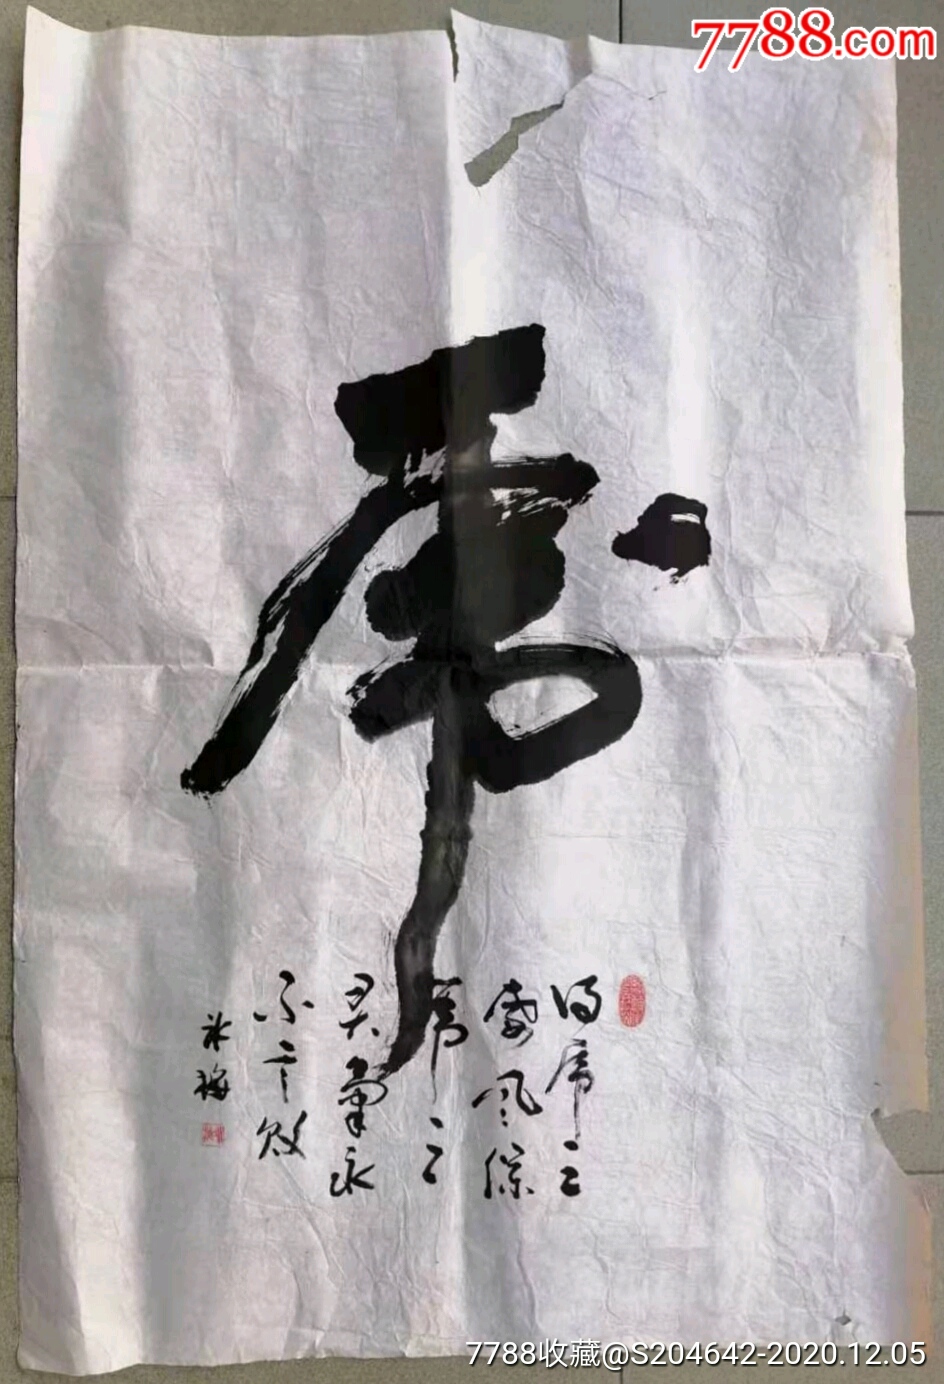 7788.com
虎
得虎之
威风
虎之
灵气永
不言败
冰梅
7788收藏@S204642-2020.12.05